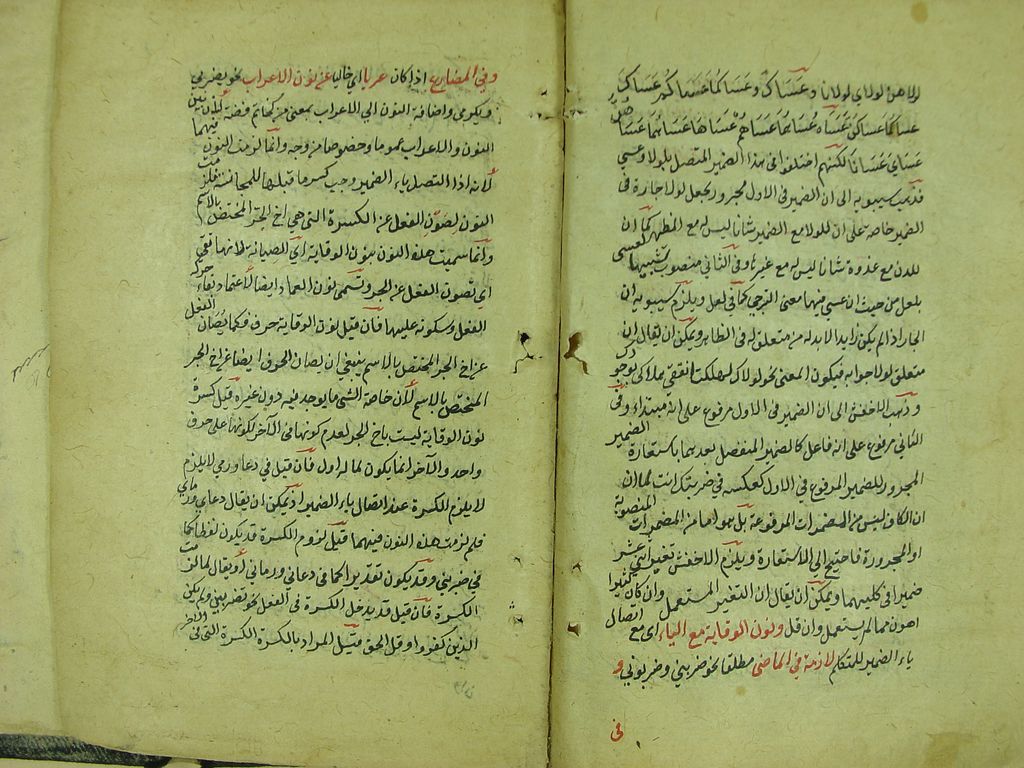 لولاهن لولاي لولانا وعساك وعساكما عساكم عساك
عساكما عساكن عساه عساهما عساهم عساها عساهما عساهن
عساي عسانا لكنهم اختلفوا في هذا الضمير المتصل بلولا وعسى
فذهب سيبويه الى ان الضمير في الاول مجرور بجعل لولا جارة في
الضمير خاصة على ان للولا مع الضمير شانا ليس له مع المظهر كما ان
للدن مع غدوة شانا ليس له مع غيرها وفي الثاني منصوب تشبيها لعسى
بلعل من حيث ان عسى فيها معنى الترجي كما في لعل ويلزم سيبويه ان
الجار اذا لم يكن زايدا لابد له من متعلق له في الظاهر ويمكن ان يقال ان
متعلق لولا جوابه فيكون المعنى نحو لولاك لهلكت انتفى هلاكي لوجودك
وذهب الاخفش الى ان الضمير في الاول مرفوع على انه مبتداء وفي
الثاني مرفوع على انه فاعل كالضمير المنفصل بعدهما باستعارة الضمير
المجرور للضمير المرفوع في الاول كعكسه في ضربتك انت لما ان
ان الكاف ليس من المضمرات المرفوعة بل هو اما من المضمرات المنصوبة
او المجرورة فاحتيج الى الاستعارة ويلزم الاخفش تغيير اثني عشر
ضميرا في كليهما ويمكن ان يقال ان التغير المستعمل وان كان كثيرا
اهون مما لم يستعمل وان قل ونون الوقاية مع الياء اى مع اتصال
ياء الضمير للمتكلم لازمة في الماضي مطلقا نحو ضربني وضربوني و
في
وفي المضارع اذا كان عريا اى خاليا عن نون الاعراب نحو يضربني
ويكرمني واضافة النون الى الاعراب بمعنى من كخاتم فضة لان بين
النون والاعراب عموما وخصوصا من وجه وانما لزمت النون فيهما
لانه اذا اتصل ياء الضمير وجب كسر ما قبلها للمجانسة فلزمت
النون لصون الفعل عن الكسرة التي هي اخ الجر المختص بالاسم
وانما سميت هذه النون بنون الوقاية اى الصيانة لانها تقى
اى تصون الفعل عن الجر وتسمى نون العماد ايضا لاعتماد بقاء حركة
الفعل وسكونه عليها فان قيل نون الوقاية حرف وكما يصان الفعل
عن اخ الجر المختص بالاسم ينبغي ان يصان الحرف ايضا عن اخ الجر
المختص بالاسم لان خاصة الشى ما يوجد فيه دون غيره قيل كسرة
نون الوقاية ليست باخ الجر لعدم كونها في الآخر لكونها على حرف
واحد والآخر انما يكون لما له اول فان قيل في دعا ورمى لا يلزم
لا يلزم الكسرة عند اتصال ياء الضمير اذ يمكن ان يقال دعاى ورماي
فلم لزمت هذه النون فيهما قيل لزوم الكسرة قد يكون لفظا كما
في ضربني وقد يكون تقديرا كما في دعاني ورماني او يقال لما لزمت
الكسرة فان قيل قد يدخل الكسرة في الفعل نحو تضربين ولم يكن
الذين كفروا وقل الحق قيل المراد بالكسرة الكسرة التي في الآخر